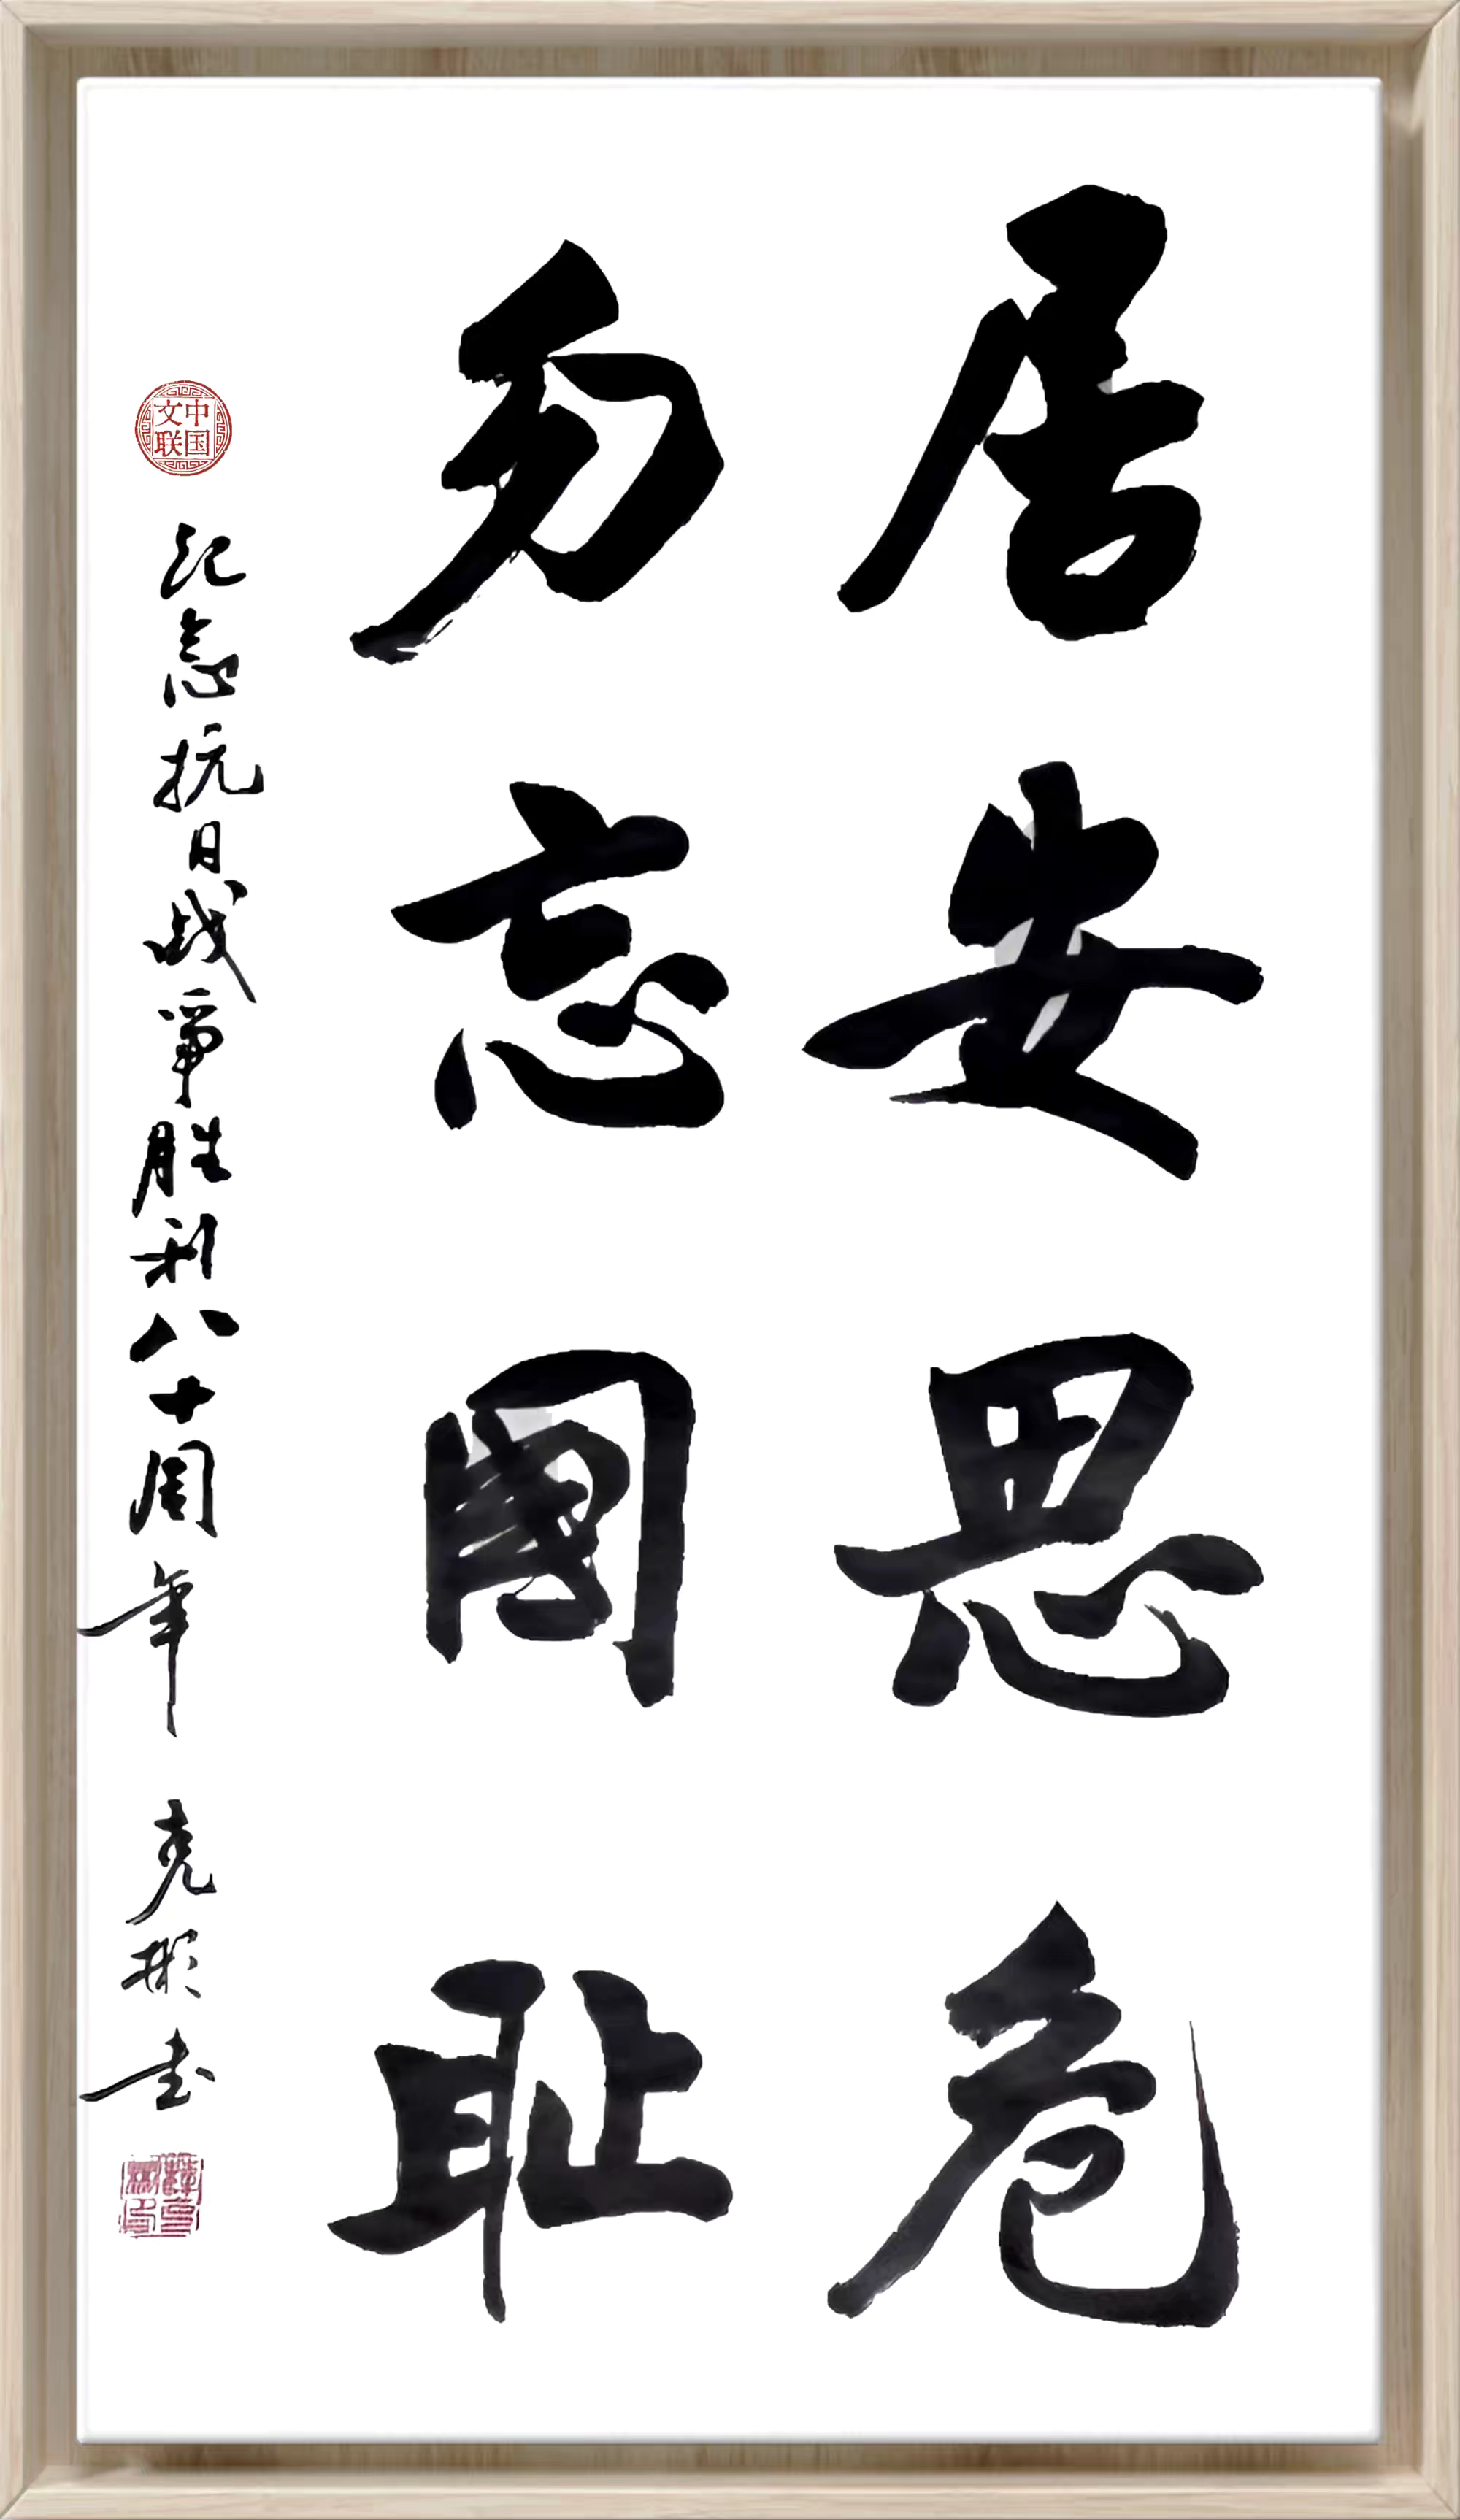 居安思危
勿忘國耻
中国文联
纪念抗日战争胜利八十周年 克彬书